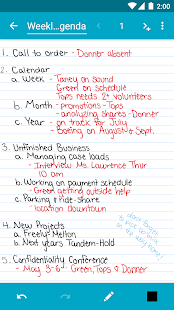 2:00
Weekl...genda
1
1. Call to order - Donner absent
2. Calendar
a. Week - Taney on sound
Green on schedule
Tops needs 2+ volunteers
b. Month - promotions - Tops
- analyzing shares - Donner
c. Year - on track for July
- Boeing on August & Sept.
3. Unfinished Business
a. Managing case loads
- Interview Ms. Lawrence Thur
10 am
b. Working on payment schedule
- Green getting outside help
c. Parking & Ride-Share
- location downtown
4. New Projects
a. Freely-Mellon
b. Next years Tandem-Hold
5. Confidentiality Conference
- May 3-6 - Green, Tops & Donner